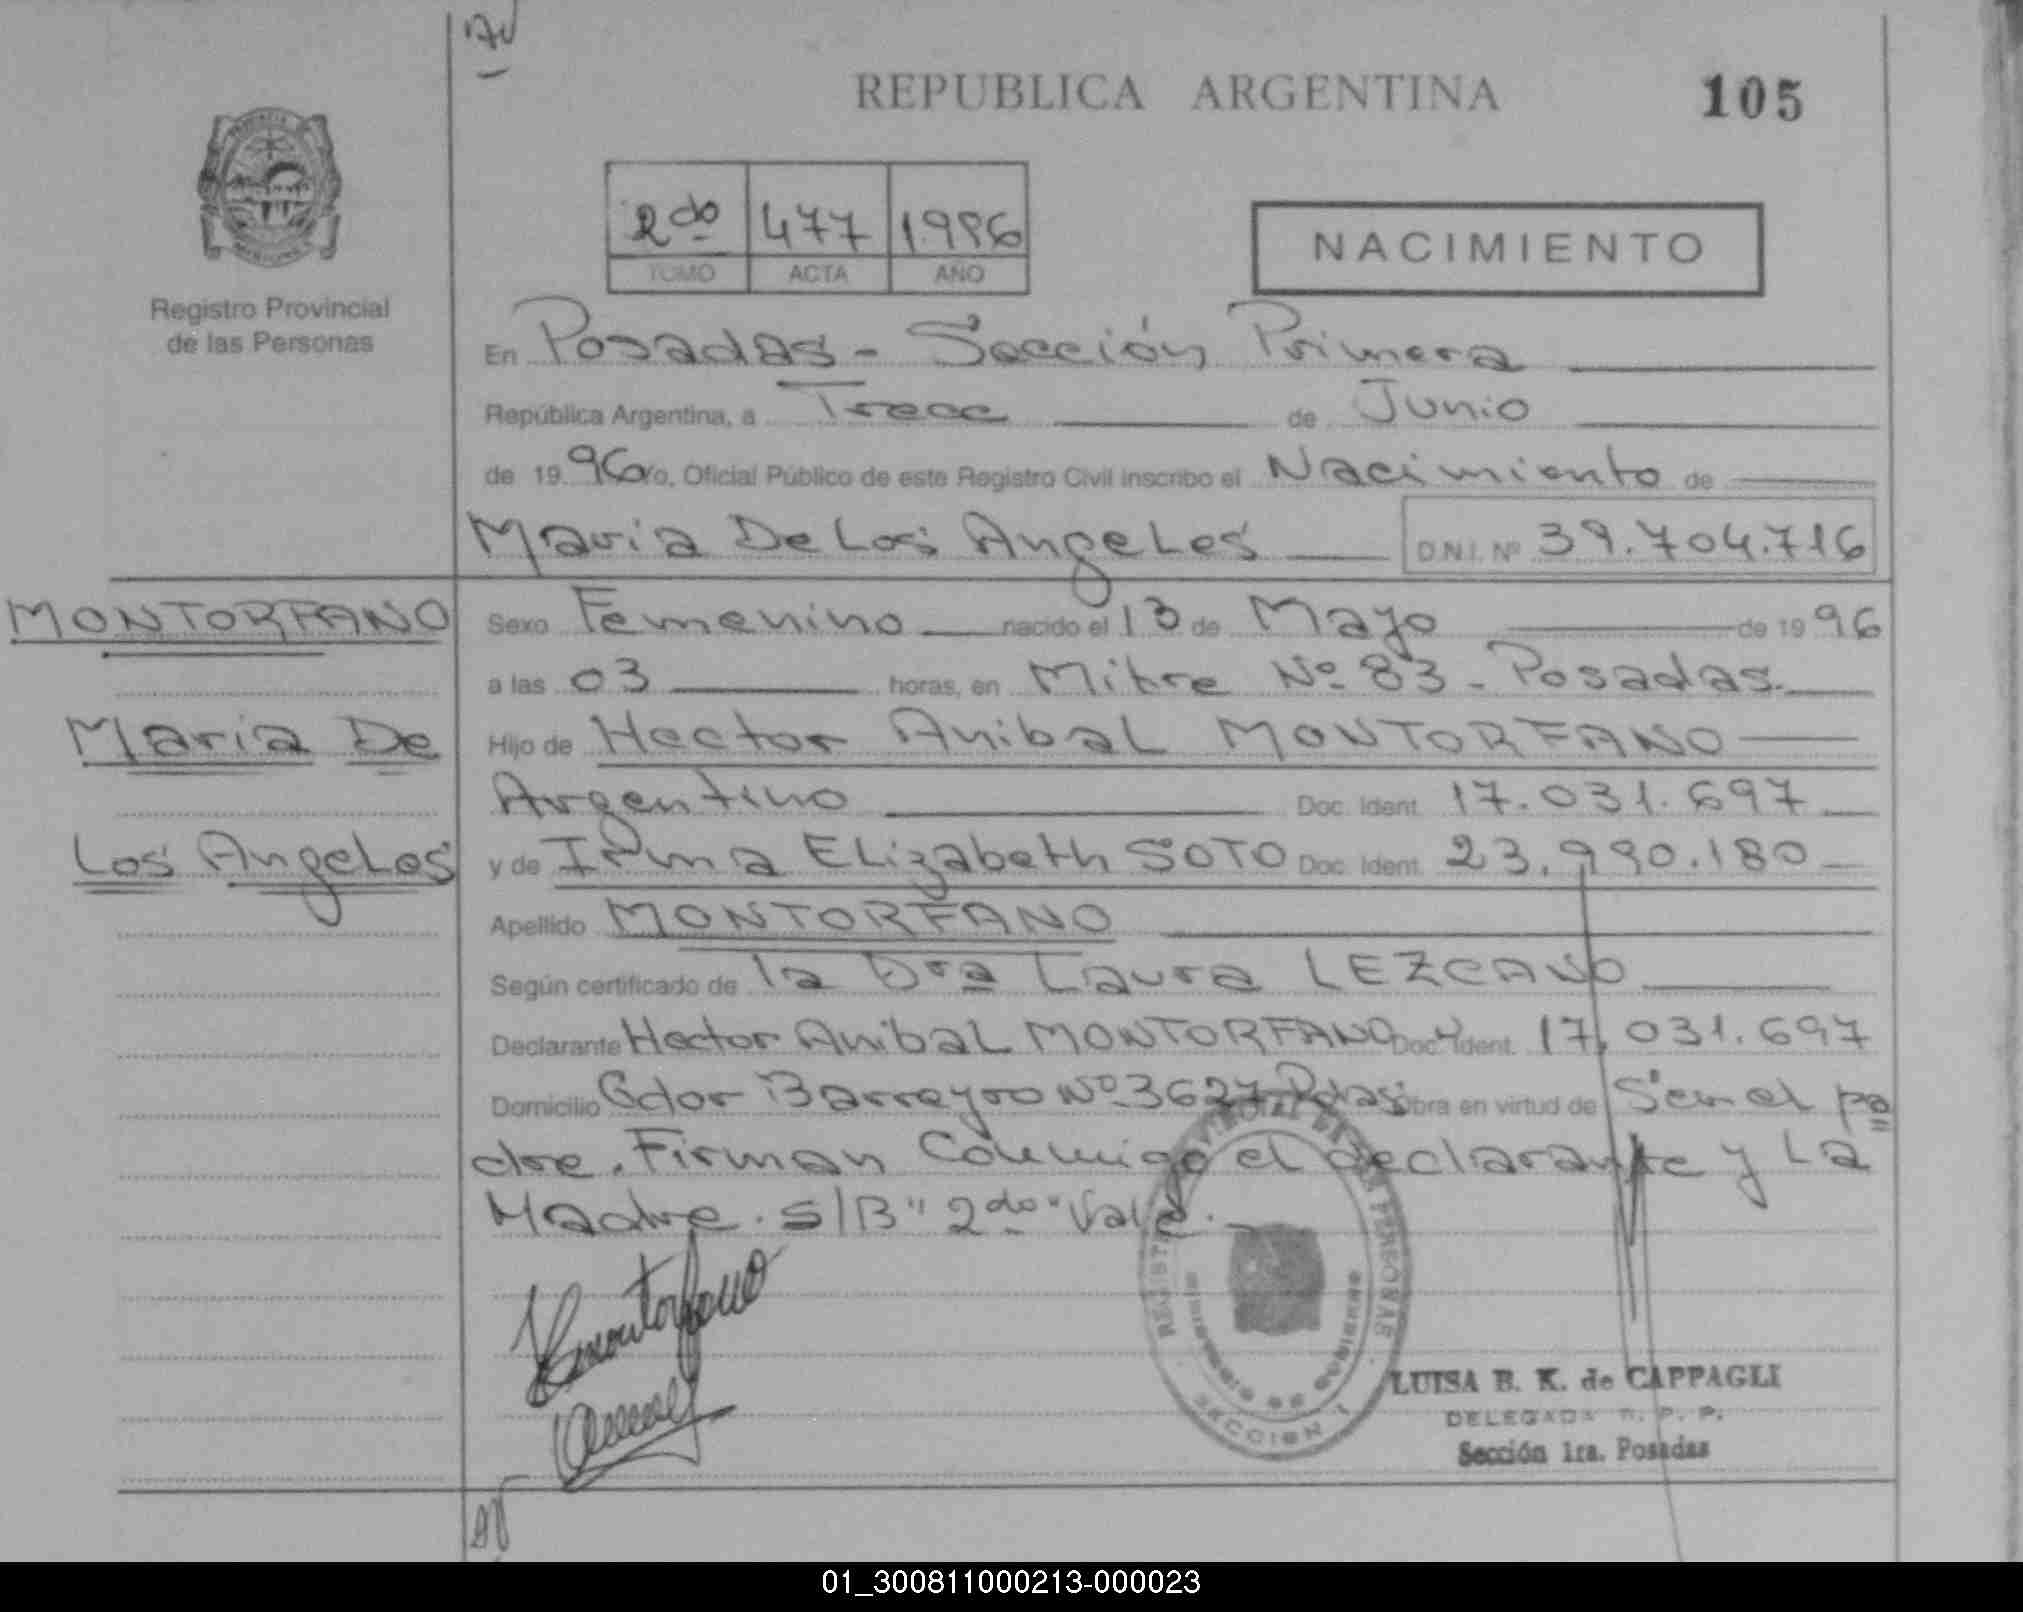 REPUBLICA ARGENTINA
105
2do 477 1996
TOMO ACTA AÑO
NACIMIENTO
Registro Provincial
de las Personas
En Posadas - Sección Primera
República Argentina, a Trece de Junio
de 19 96 Yo, Oficial Público de este Registro Civil inscribo el Nacimiento de
Maria De Los Angeles D.N.I. Nº 39.704.716
MONTORFANO
Maria De
Los Angeles
Sexo Femenino nacido el 13 de Mayo de 19 96
a las 03 horas, en Mitre Nº 83 - Posadas.
Hijo de Hector Anibal MONTORFANO
Argentino Doc. Ident. 17.031.697
y de Irma Elizabeth SOTO Doc. Ident. 23.990.180
Apellido MONTORFANO
Según certificado de la Dra Laura LEZCANO
Declarante Hector Anibal MONTORFANO Doc. Ident. 17.031.697
Domicilio Gdor Barreyro Nº 3627 Pdas Obra en virtud de Ser el pa
dre. Firman Conmigo el declarante y La
Madre. S/B "2do" Vale.
REGISTRO PROVINCIAL DE LAS PERSONAS
MINISTERIO DE GOBIERNO
SECCION 1
LUISA B. K. de CAPPAGLI
DELEGADA R. P. P.
Sección 1ra. Posadas
01_300811000213-000023